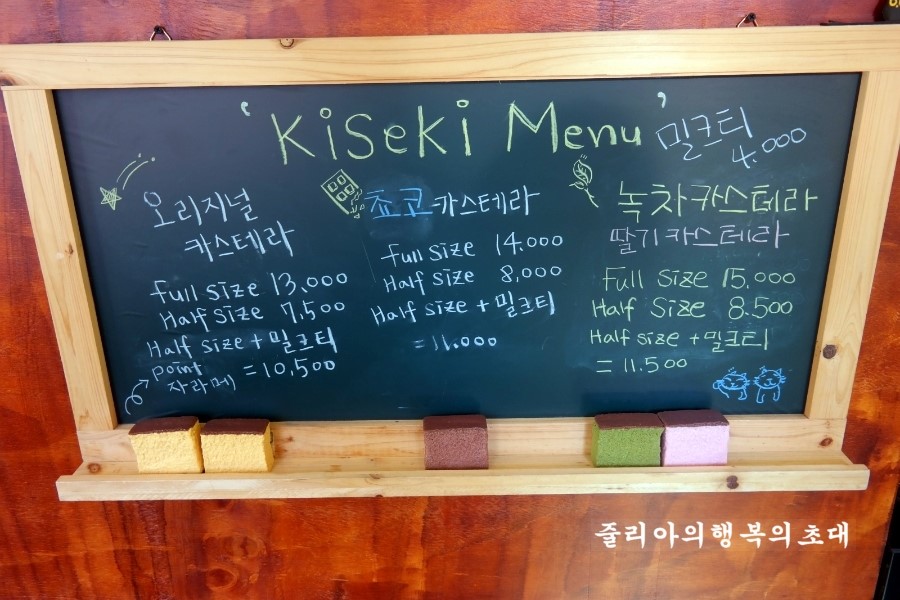 'Kiseki Menu'
밀크티
4.000
오리지널
카스테라
full size 13,000
Half size 7,500
Half size + 밀크티
= 10,500
point
자라메
쵸코카스테라
full size 14.000
Half size 8,000
Half size + 밀크티
= 11.000
녹차카스테라
딸기카스테라
Full Size 15.000
Half Size 8.500
Half size + 밀크티
= 11.500
줄리아의행복의초대